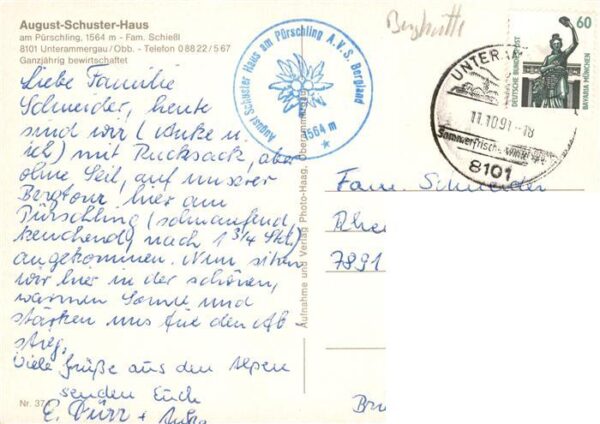 August-Schuster-Haus
am Pürschling, 1564 m - Fam. Schießl
8101 Unterammergau/Obb. - Telefon 0 88 22 / 5 67
Ganzjährig bewirtschaftet
Liebe Familie
Schneider, heute
sind wir (Anke u.
ich) mit Rucksack, aber
ohne Seil, auf unserer
Bergtour hier am
Pürschling (schnaufend,
keuchend) nach 1 3/4 Std.
angekommen. Nun sitzen
wir hier in der schönen,
warmen Sonne und
stärken uns für den Ab
stieg.
Viele Grüße aus den Alpen
senden Euch
E. Dürr + Anke
Nr. 37
August Schuster Haus am Pürschling A.V.S. Bergland
1564 m
Aufnahme und Verlag Photo-Haag, Oberammergau
Berghütte
60
DEUTSCHE BUNDESPOST
BAVARIA MÜNCHEN
UNTER
11.10.91-18
Sommerfrische
8101
Fam. Schneider
Rhe
7891